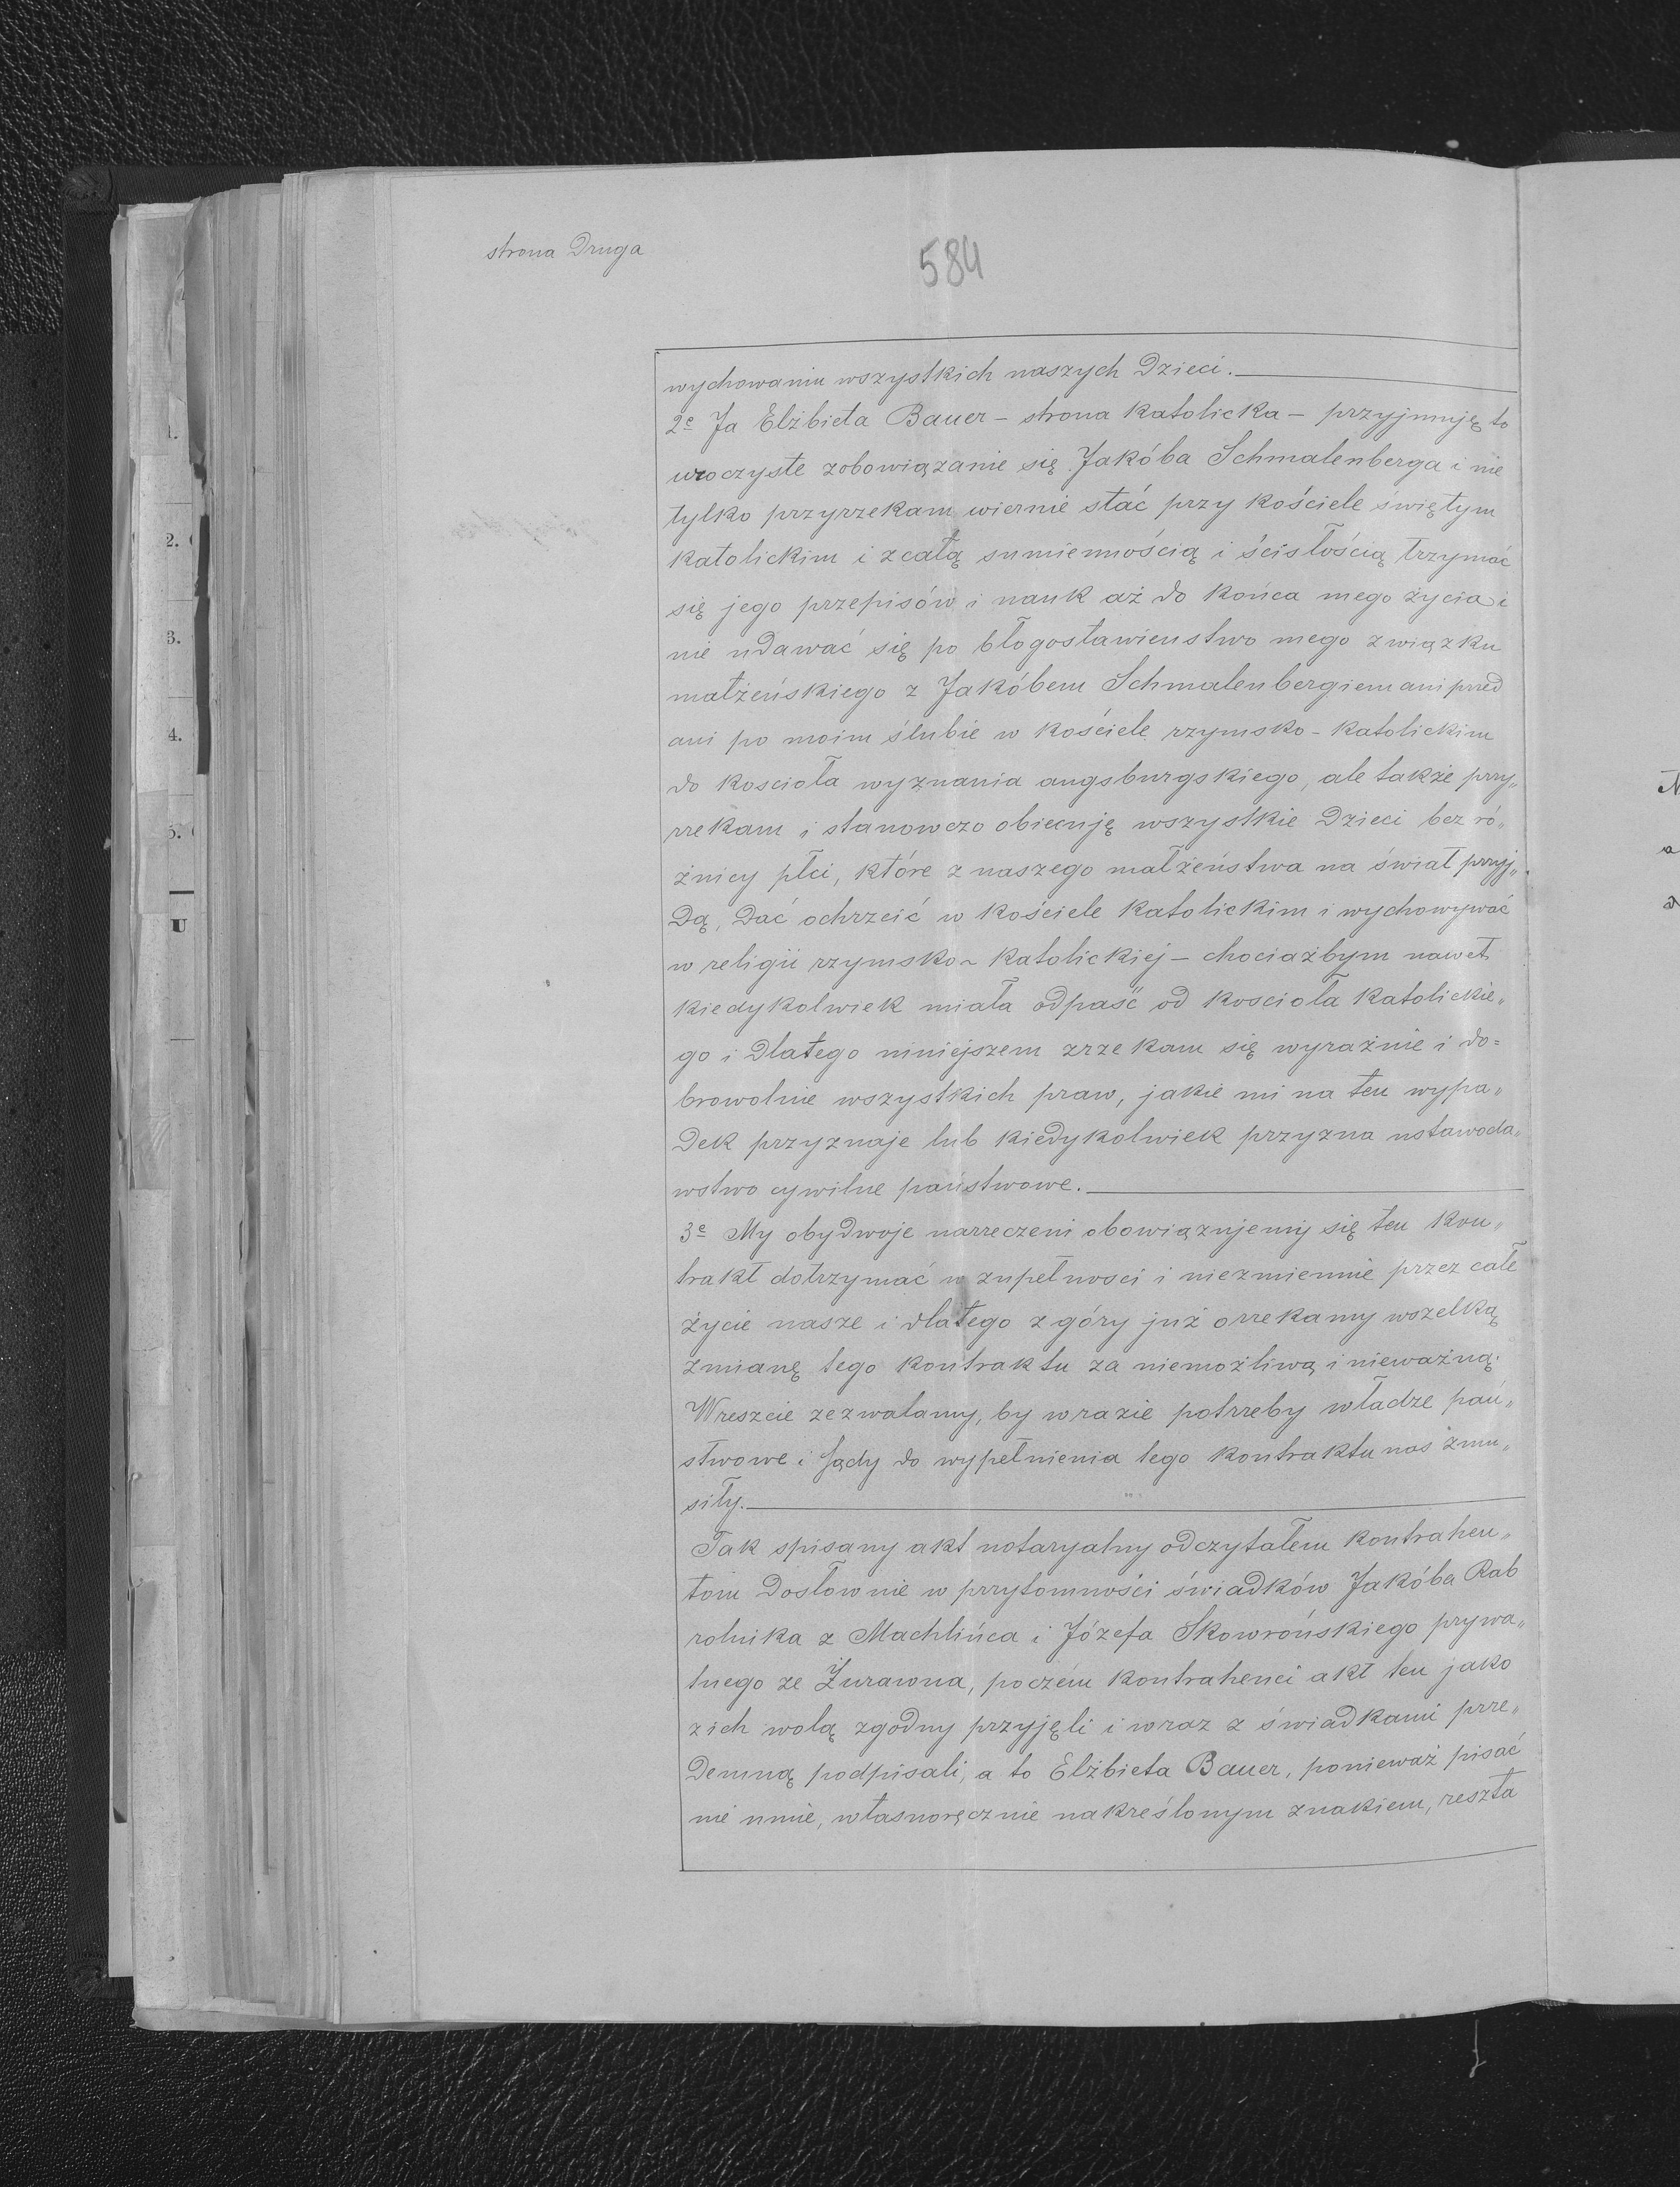 strona Druga
584
wychowaniu wszystkich naszych Dzieci.
2e Ja Elżbieta Bauer – strona katolicka – przyjmuję to
uroczyste zobowiązanie się Jakóba Schmalenberga i nie
tylko przyrzekam wiernie stać przy kościele świętym
katolickim i z całą sumiennością i ścisłością trzymać
się jego przepisów i nauk aż do końca mego życia i
nie udawać się po błogosławieństwo mego związku
małżeńskiego z Jakóbem Schmalenbergiem ani przed
ani po moim ślubie w kościele rzymsko-katolickim
do koscioła wyznania augsburgskiego, ale także przy„
rzekam i stanowczo obiecuję wszystkie Dzieci bez ró„
żnicy płci, które z naszego małżeństwa na świat przyj„
Dą, Dać ochrzcić w kościele katolickim i wychowywać
w religii rzymsko-katolickiej – chociażbym nawet
kiedykolwiek miała odpaść od koscioła katolickie„
go i Dlatego niniejszem zrzekam się wyraźnie i do=
browolnie wszystkich praw, jakie mi na ten wypa„
Dek przyznaje lub kiedykolwiek przyzna ustawoda„
wstwo cywilne państwowe.
3e My obydwoje narzeczeni obowiązujemy się ten kon„
trakt dotrzymać w zupełnosci i niezmiennie przez całe
życie nasze i dlatego z góry już orzekamy wszelką
zmianę tego kontraktu za niemożliwą i nieważną.
Wreszcie zezwalamy, by w razie potrzeby władze pań„
stwowe i Sądy do wypełnienia tego kontraktu nas zmu„
siły.
Tak spisany akt notaryalny odczytałem kontrahen„
tom Dosłownie w przytomności świadków Jakóba Rab
rolnika z Machlińca i Józefa Skowrońskiego prywa„
tnego ze Żurawna, poczém kontrahenci akt ten jako
z ich wolą zgodny przyjęli i wraz z świadkami prze„
Demną podpisali, a to Elżbieta Bauer, ponieważ pisać
nie umie, własnoręcznie nakreślonym znakiem, reszta
1.
2.
3.
4.
5.
U